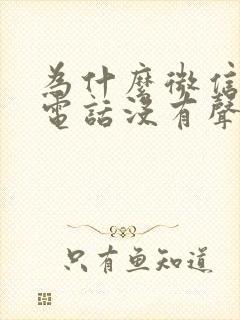 為什麼微信
電話沒有聲
只有魚知道